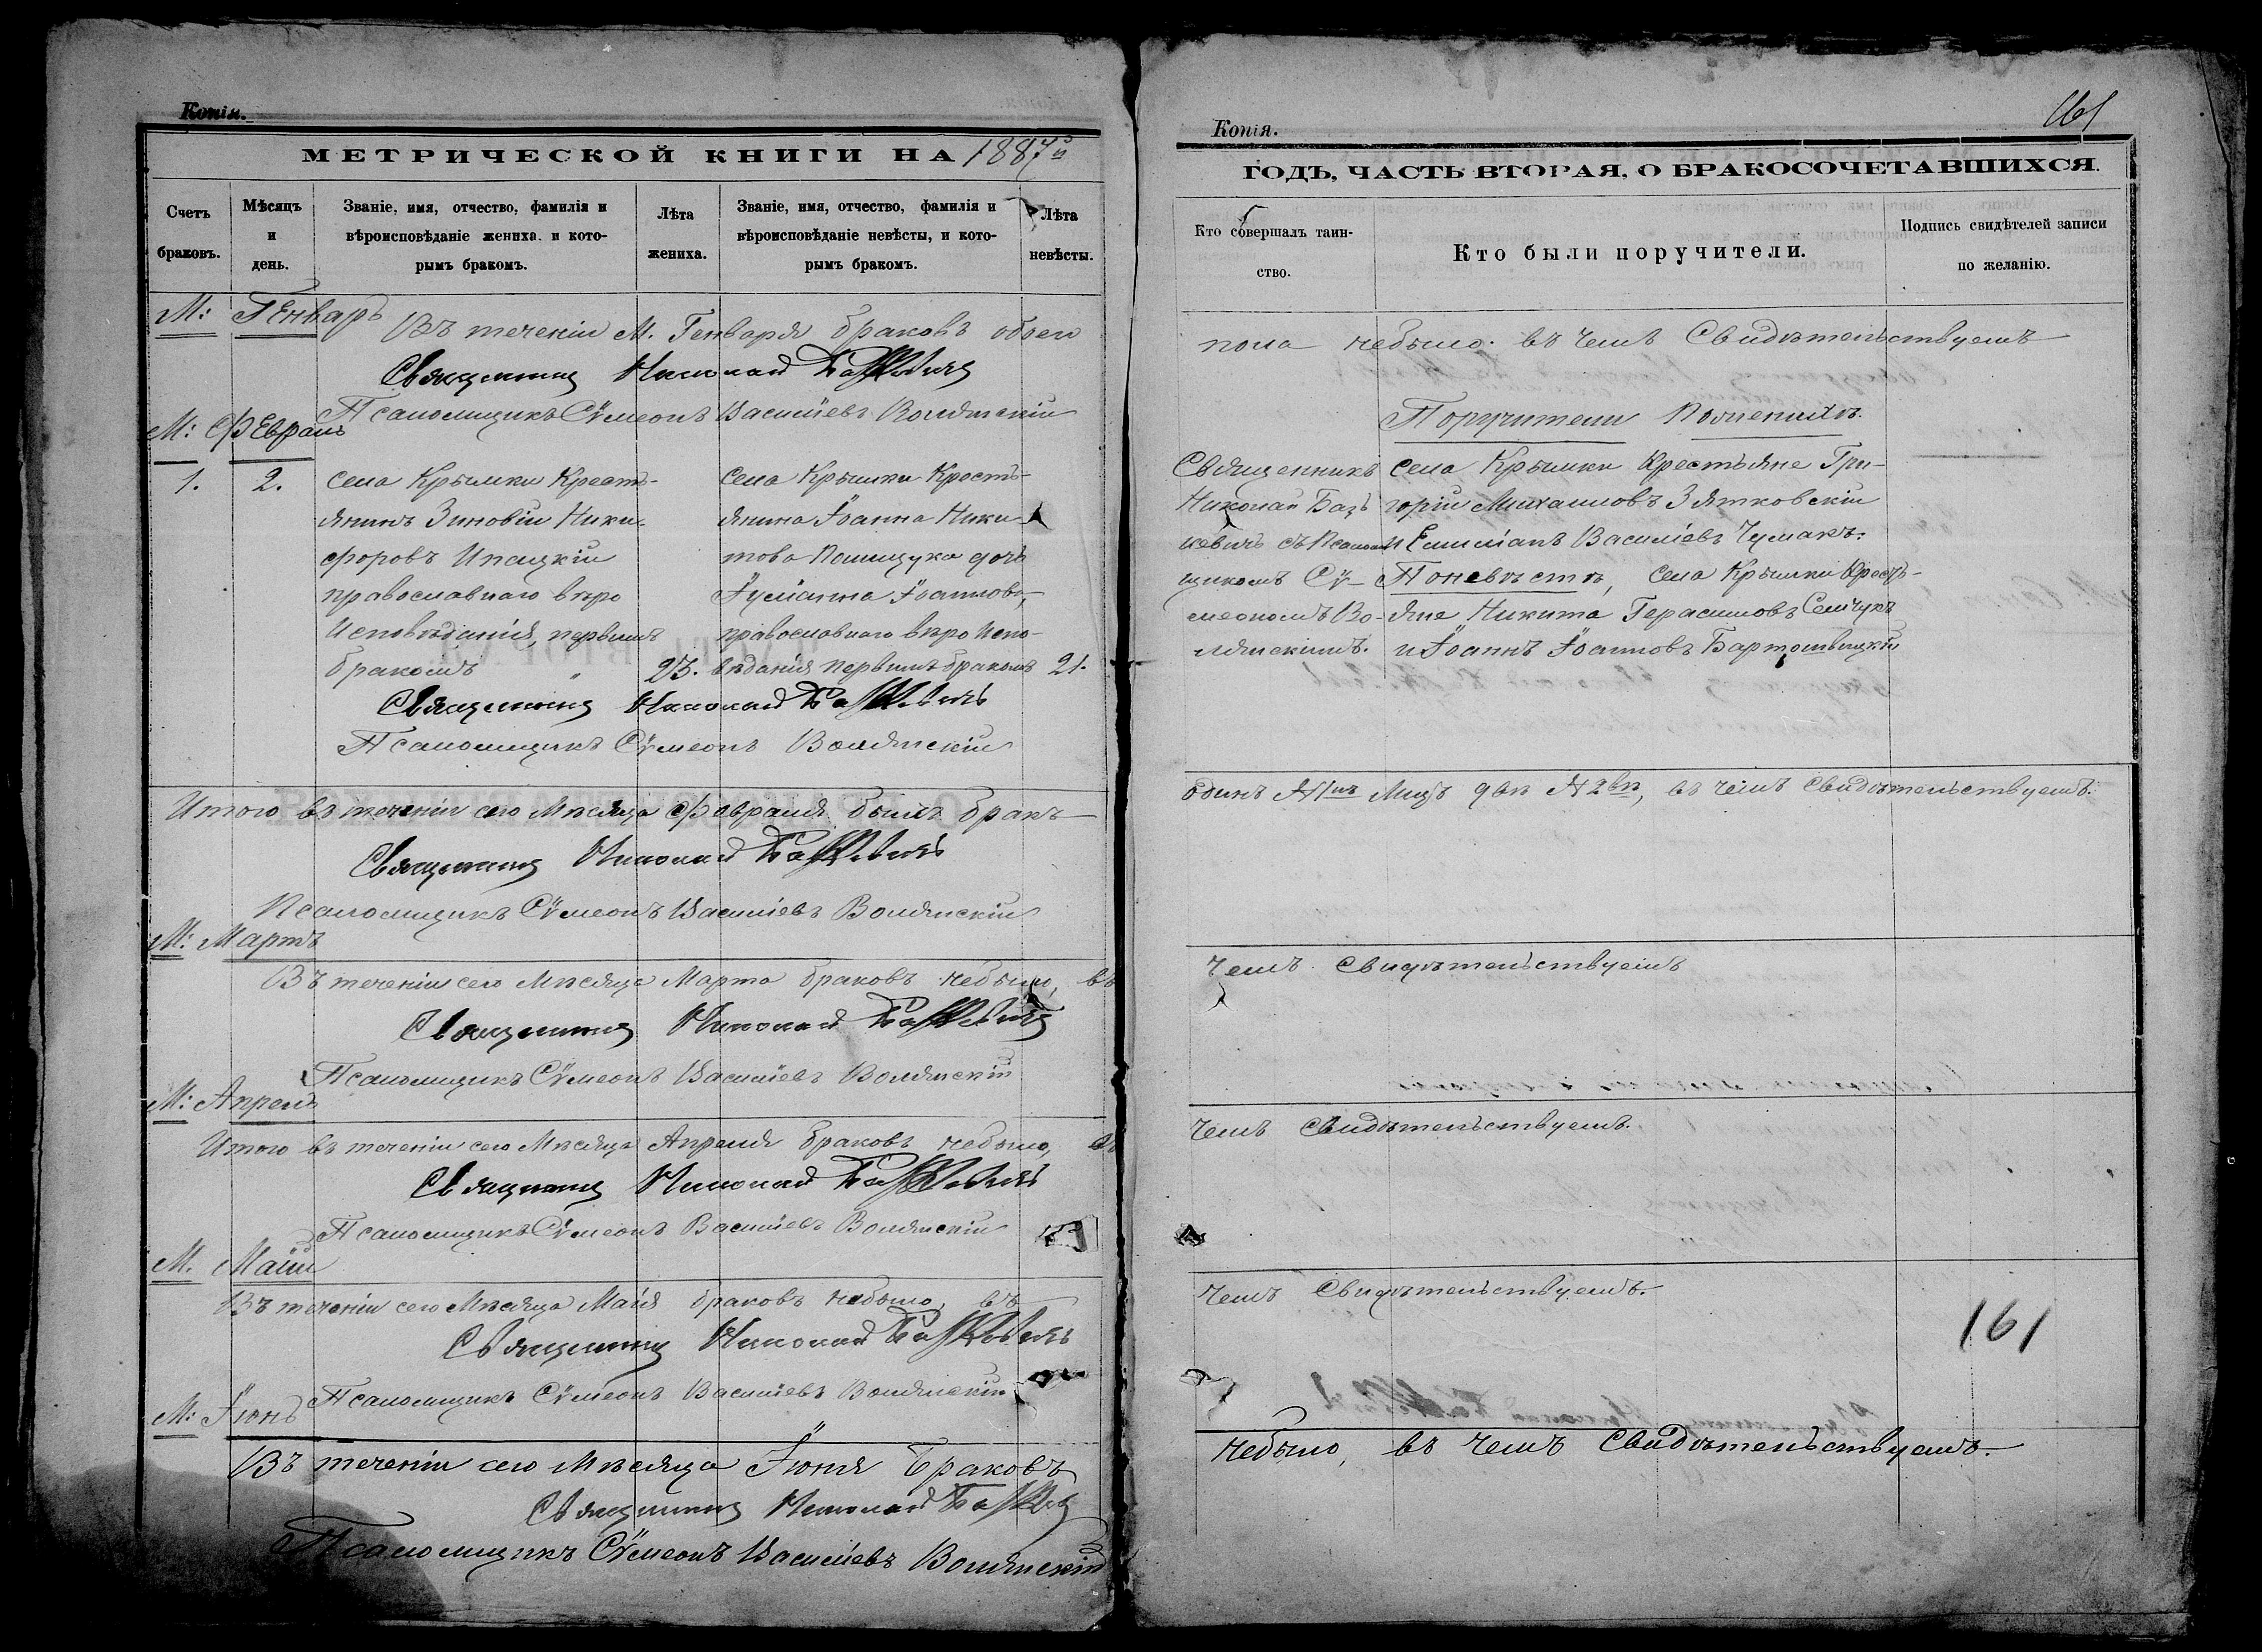 Копія.
МЕТРИЧЕСКОЙ КНИГИ НА 1887й
Счетъ браковъ.
Мѣсяцъ и день.
Званіе, имя, отчество, фамилія и вѣроисповѣданіе жениха. и которымъ бракомъ.
Лѣта жениха.
Званіе, имя, отчество, фамилія и вѣроисповѣданіе невѣсты, и которымъ бракомъ.
Лѣта невѣсты.
М: Генварь
Въ теченіи М. Генваря браковъ обоего
Священникъ Николай Базкевичъ
Псаломщикъ Сѵмеонъ Василіевъ Волянскій
М: Февраль
1. 2.
села Крымки Кресть-
янинъ Зиновій Ники-
форовъ Ипацкій
православнаго вѣро
Исповѣданія, первымъ
бракомъ 23.
села Крымки Кресть-
янина Іоанна Ники-
това Полищука дочь
Іуліанна Іоаннова,
православнаго вѣро Испо-
вѣданія первымъ бракомъ 21.
Священникъ Николай Базкевичъ
Псаломщикъ Сѵмеонъ Волянскій
Итого въ теченіи сего Мѣсяца Февраля былъ бракъ
Священникъ Николай Базкевичъ
Псаломщикъ Сѵмеонъ Василіевъ Волянскій
М: Мартъ
Въ теченіи сего Мѣсяца Марта браковъ небыло, въ
Священникъ Николай Базкевичъ
Псаломщикъ Сѵмеонъ Василіевъ Волянскій
М: Апрель
Итого въ теченіи сего Мѣсяца Апреля браковъ небыло, въ
Священникъ Николай Базкевичъ
Псаломщикъ Сѵмеонъ Василіевъ Волянскій
М. Маій
Въ теченіи сего Мѣсяца Маія браковъ небыло, въ
Священникъ Николай Базкевичъ
Псаломщикъ Сѵмеонъ Василіевъ Волянскій
М: Іюнь
Въ теченіи сего Мѣсяца Іюня Браковъ
Священникъ Николай
Псаломщикъ Сѵмеонъ Василіевъ Волянскій
161
Копія.
ГОДЪ, ЧАСТЬ ВТОРАЯ, О БРАКОСОЧЕТАВШИХСЯ.
Кто совершалъ таинство.
Кто были поручители.
Подпись свидѣтелей записи по желанію.
пола небыло. въ чемъ Свидѣтельствуемъ
Поручители Поженихѣ.
Священникъ
Николай Баз
кевичъ съ Псалом
щикомъ Сѵ-
меономъ Во-
лянскимъ.
села Крымки Крестьяне Гри-
горій Михаиловъ Зятковскій
и Емиліанъ Василіевъ Чумакъ.
Поневѣстѣ, села Крымки Кресть-
яне Никита Герасимовъ Семчукъ
и Іоаннъ Іоанновъ Бартошвицкій
одинъ №1нъ Лицъ двѣ №2вѣ, въ чемъ Свидѣтельствуемъ.
чемъ Свидѣтельствуемъ
чемъ Свидѣтельствуемъ.
чемъ Свидѣтельствуемъ.
161
небыло, въ чемъ Свидѣтельствуемъ.